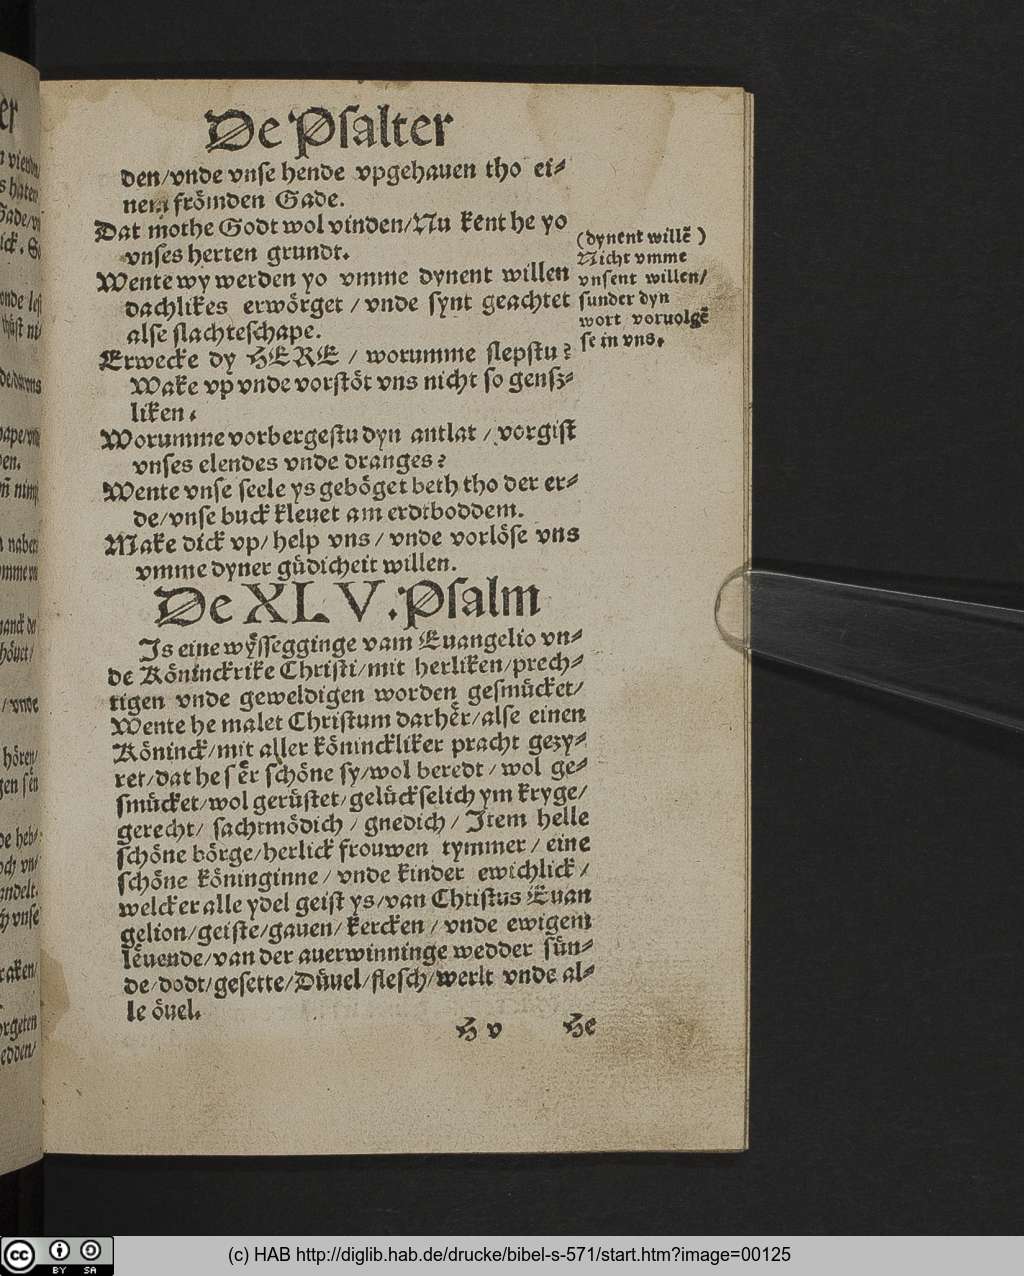 De Psalter
den/vnde vnse hende vpgehauen tho ei⸗
nem frömden Gade.
Dat mothe Godt wol vinden/Nu kent he yo
vnses herten grundt.
Wente wy werden yo vmme dynent willen
dachlikes erwörget / vnde synt geachtet
alse slachteschape.
Erwecke dy HERE / worumme slepstu?
Wake vp vnde vorstöt vns nicht so gensz⸗
liken.
Worumme vorbergestu dyn antlat / vorgist
vnses elendes vnde dranges?
Wente vnse seele ys geböget beth tho der er⸗
de/vnse buck kleuet am erdtboddem.
Make dick vp/ help vns / vnde vorlöse vns
vmme dyner güdicheit willen.
(dynent willē )
Nicht vmme
vnsent willen/
sunder dyn
wort voruolgē
se in vns.
De XLV. Psalm
Is eine wÿssegginge vam Euangelio vn⸗
de Köninckrike Christi/mit herliken/prech⸗
tigen vnde geweldigen worden gesmücket/
Wente he malet Christum darhër/alse einen
Köninck/mit aller köninckliker pracht gezy⸗
ret/dat he sër schöne sy/wol beredt / wol ge⸗
smücket/wol gerüstet/gelückselich ym kryge/
gerecht/ sachtmödich / gnedich / Item helle
schöne börge/herlick frouwen tymmer / eine
schöne köninginne / vnde kinder ewichlick /
welcker alle ydel geist ys/van Christus Euan
gelion/geiste/gauen/ kercken / vnde ewigem
lëuende/van der auerwinninge wedder sün⸗
de/dodt/gesette/Düuel/flesch/werlt vnde al⸗
le öuel.
H v He
(c) HAB http://diglib.hab.de/drucke/bibel-s-571/start.htm?image=00125